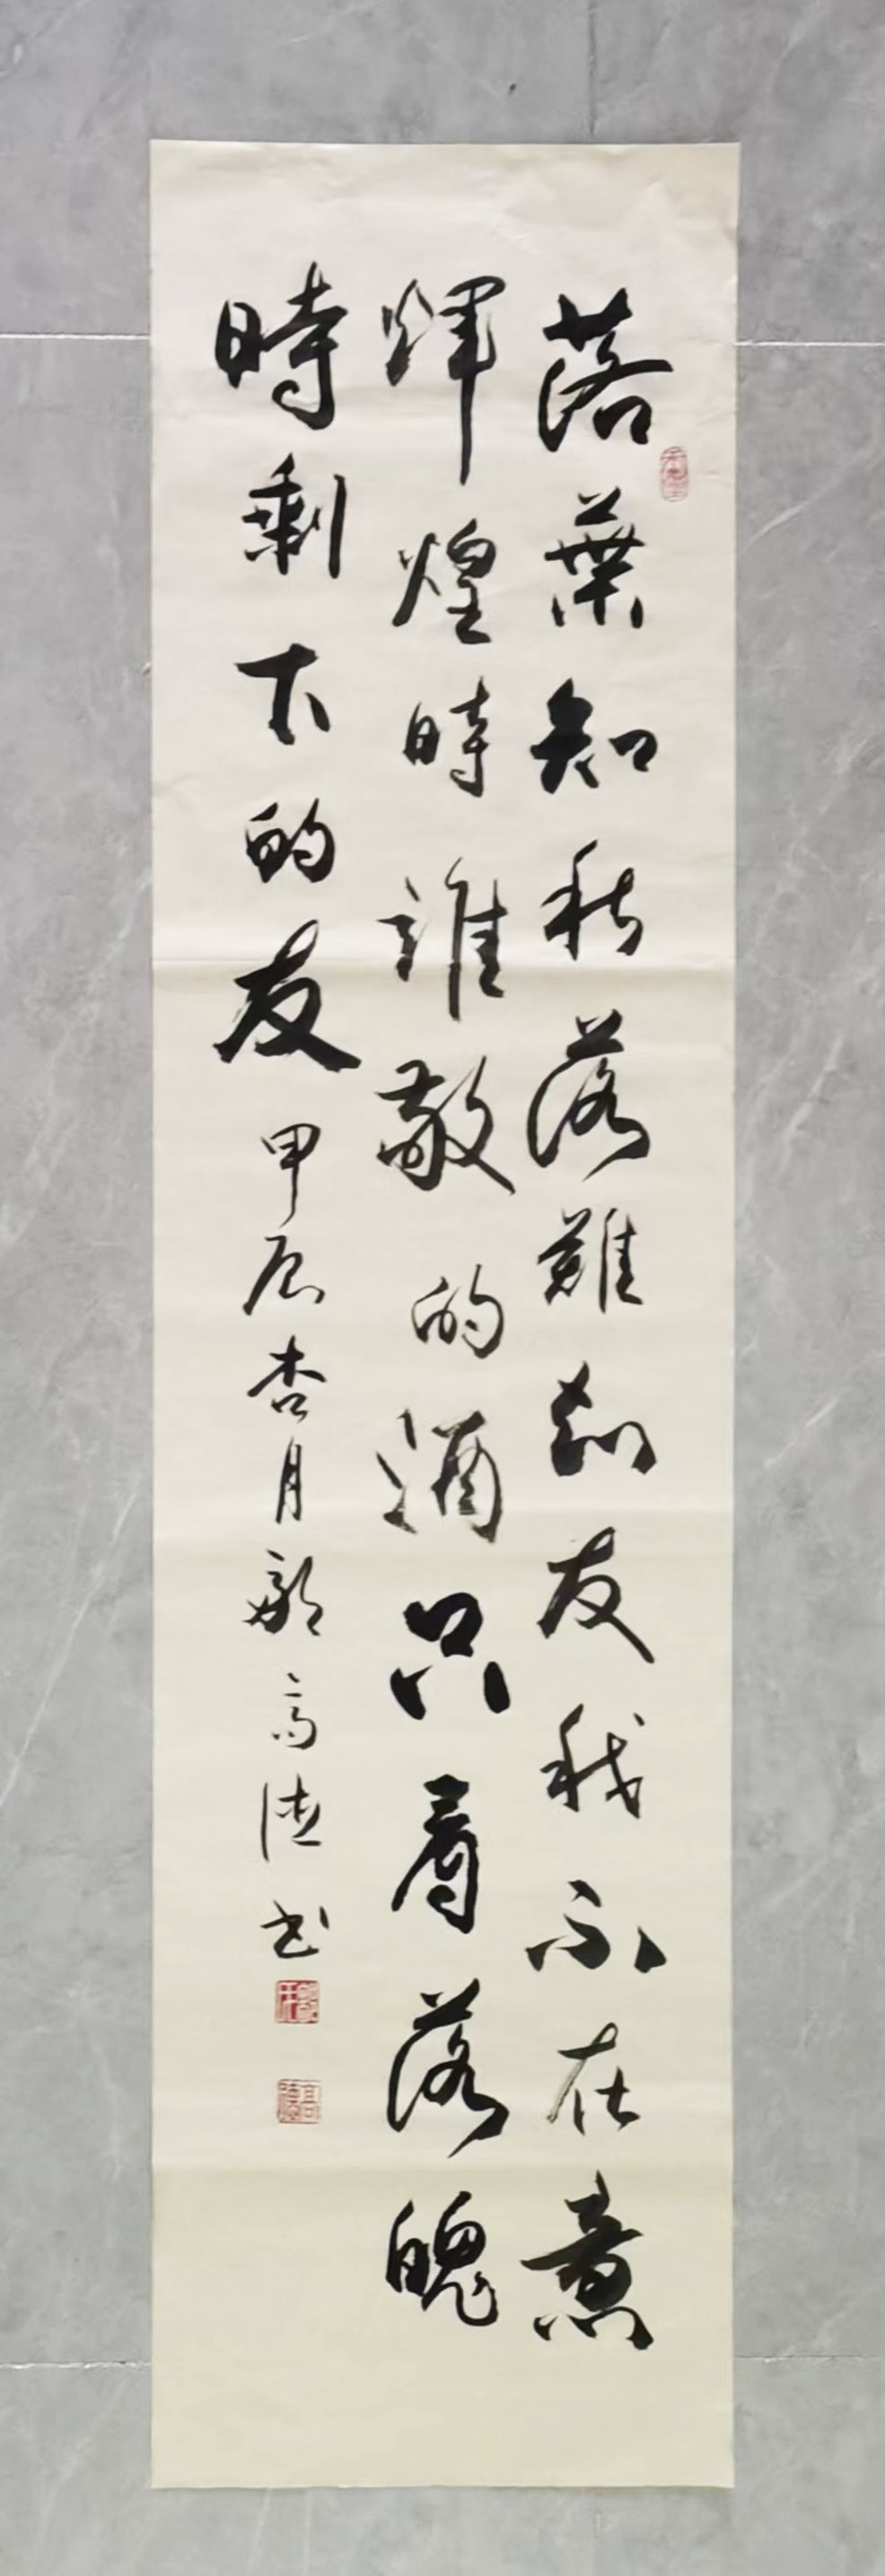 落葉知秋落難知友我不在意
輝煌時誰敬的酒只看落魄
時剩下的友甲辰杏月高德书
高德